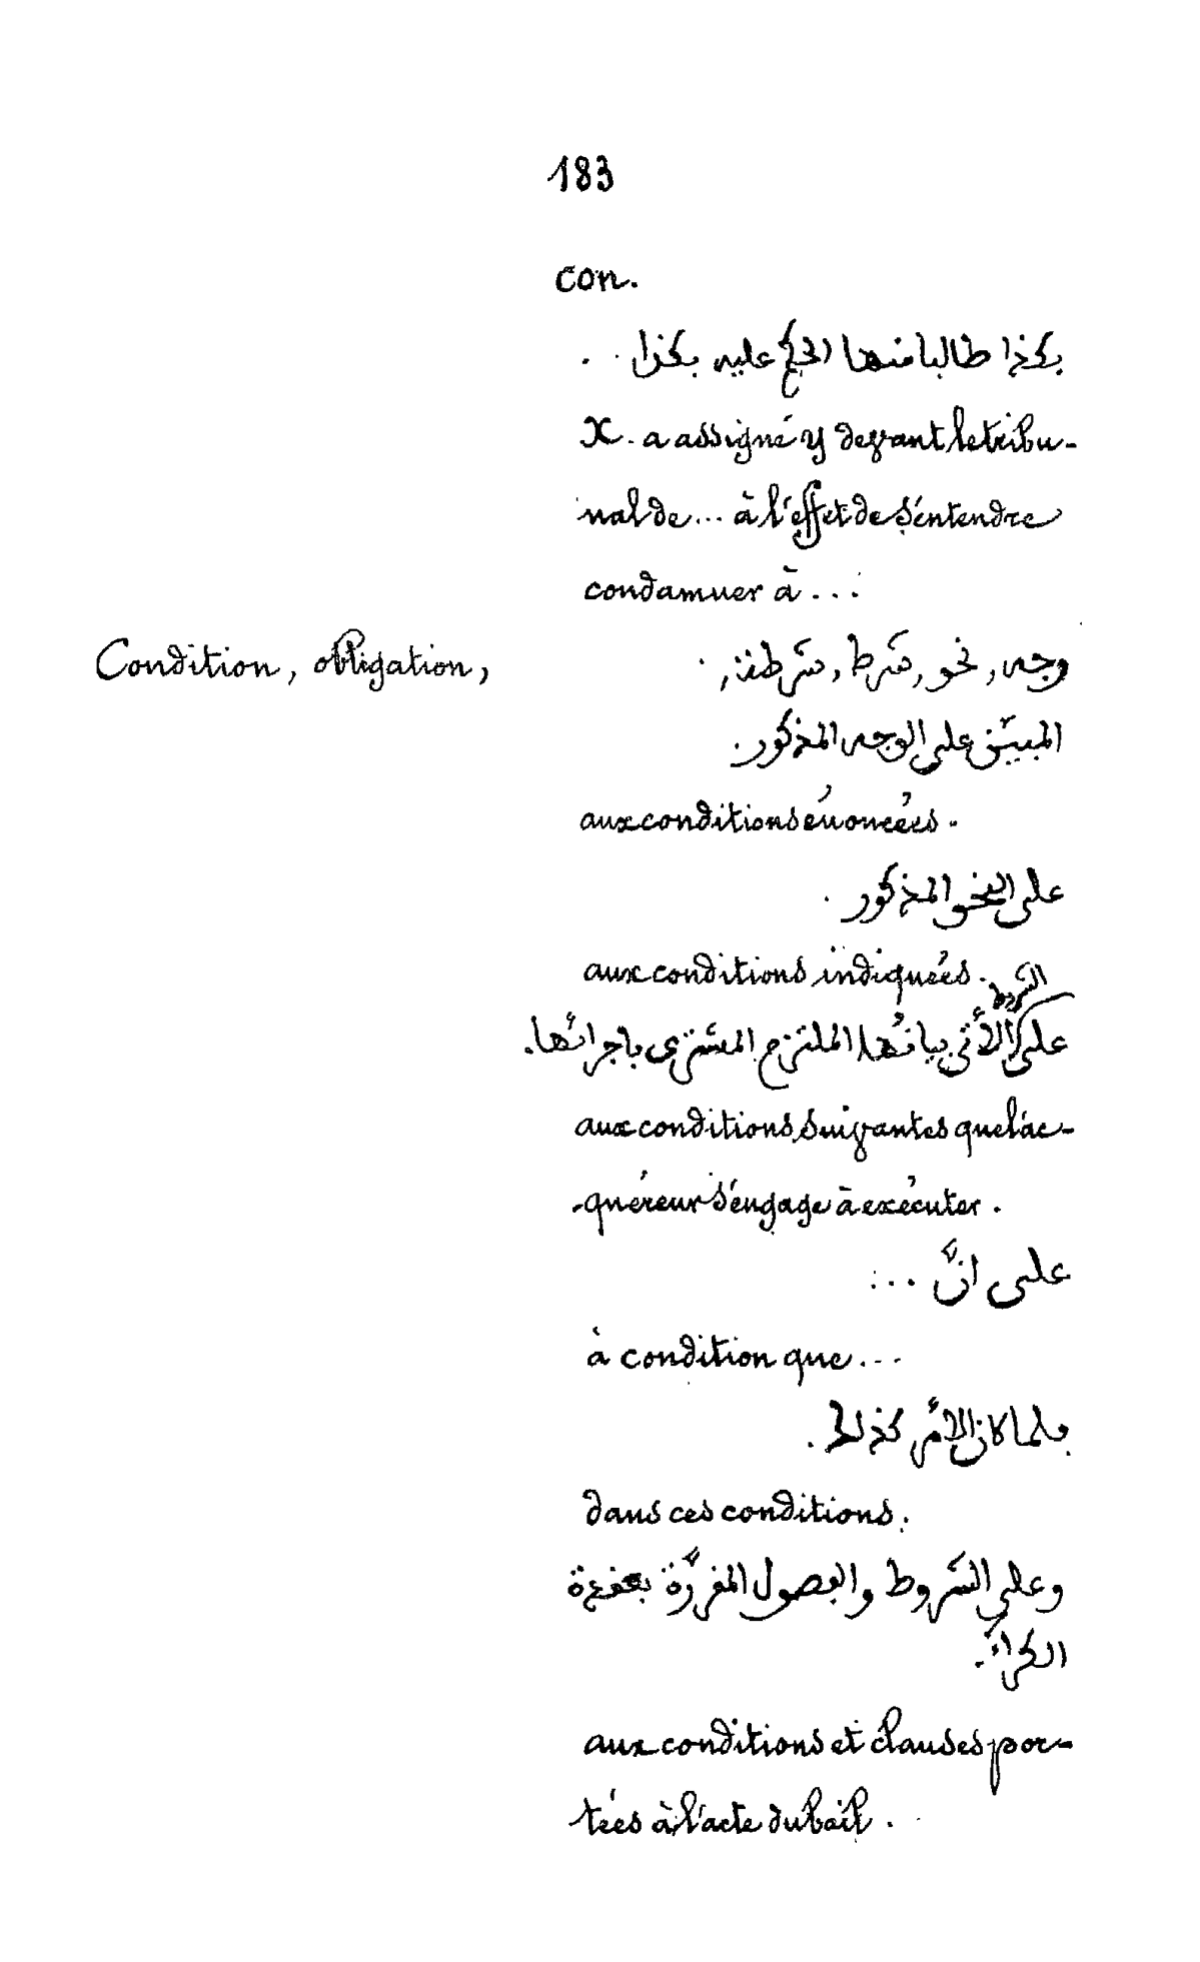 183
con.
بكذا طالبا منها الحكم عليه بكذا . .
X. a assigné y devant le tribu-
nal de... à l'effet de s'entendre
condamner à...
Condition, obligation, وجه, نحو, شرط, شرطة,
المبيّن على الوجه المذكور.
aux conditions énoncées.
على النحو المذكور.
aux conditions indiquées.
على الشروط الأتي بيانُها الملتزم المشتري باجرائها.
aux conditions suivantes que l'ac-
-quéreur s'engage à exécuter.
على انّ ...
à condition que...
فلما كان الأمر كذلك.
dans ces conditions.
وعلى الشروط والفصول المقرّرة بعقدة
الكراء.
aux conditions et clauses por-
tées à l'acte du bail.